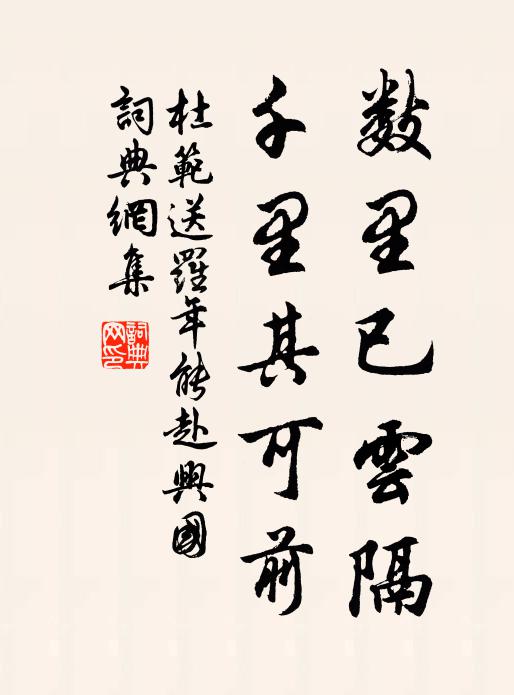 数里已雲隔
千里其可前
杜範送羅年能赴興國
詞典網集
詞典网印